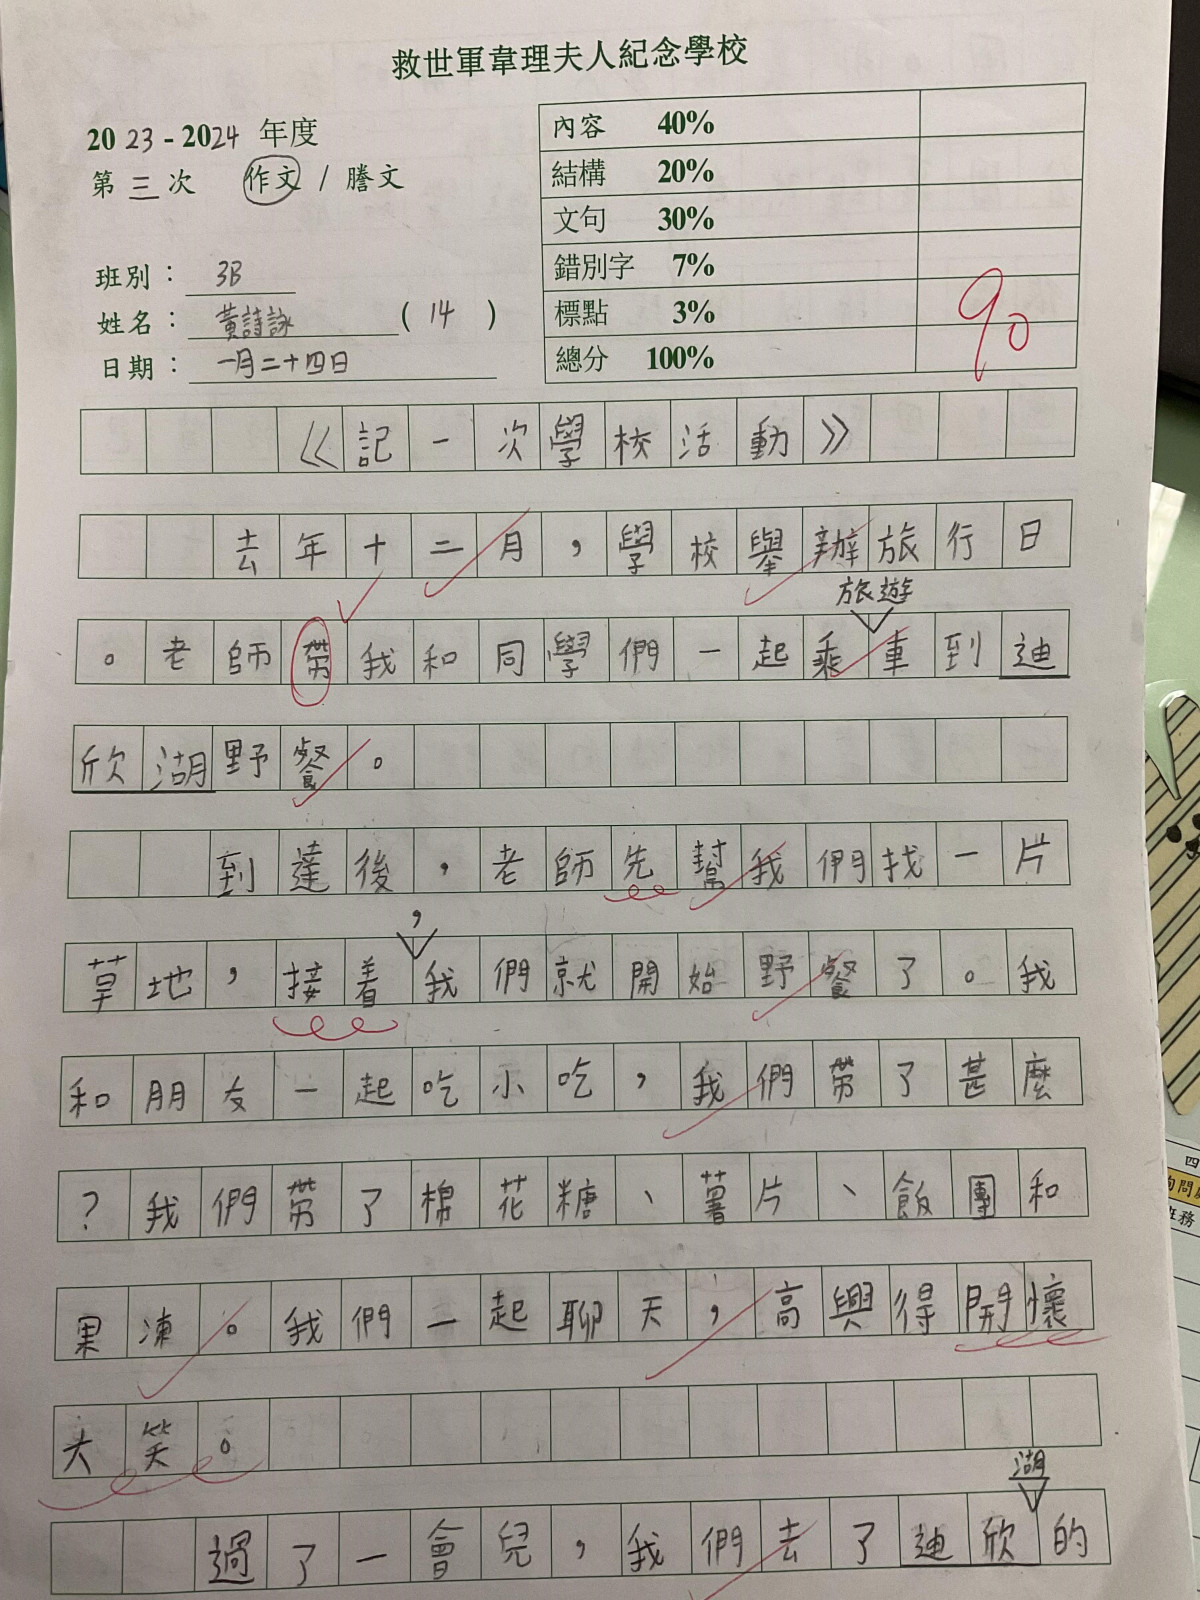 救世軍韋理夫人紀念學校
2023-2024 年度
第三次 作文 / 謄文
班別： 3B
姓名： 黃詩詠 ( 14 )
日期： 一月二十四日
內容 40%
結構 20%
文句 30%
錯別字 7%
標點 3%
總分 100%
90
《記一次學校活動》
去年十二月，學校舉辦旅行日
旅遊
。老師帶我和同學們一起乘車到迪
欣湖野餐。
到達後，老師先幫我們找一片
，
草地，接着我們就開始野餐了。我
和朋友一起吃小吃，我們帶了甚麼
？我們帶了棉花糖、薯片、飯團和
果凍。我們一起聊天，高興得開懷
大笑。
湖
過了一會兒，我們去了迪欣的
四
句問
班務